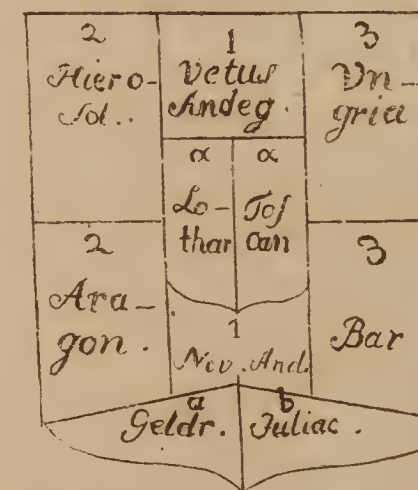 2
Hiero-
sol..
1
Vetus
Andeg.
3
Vn-
gria
α
Lo-
thar
α
Tos
can
2
Ara-
gon.
1
Nov. And.
3
Bar
a
Geldr.
b
Iuliac.